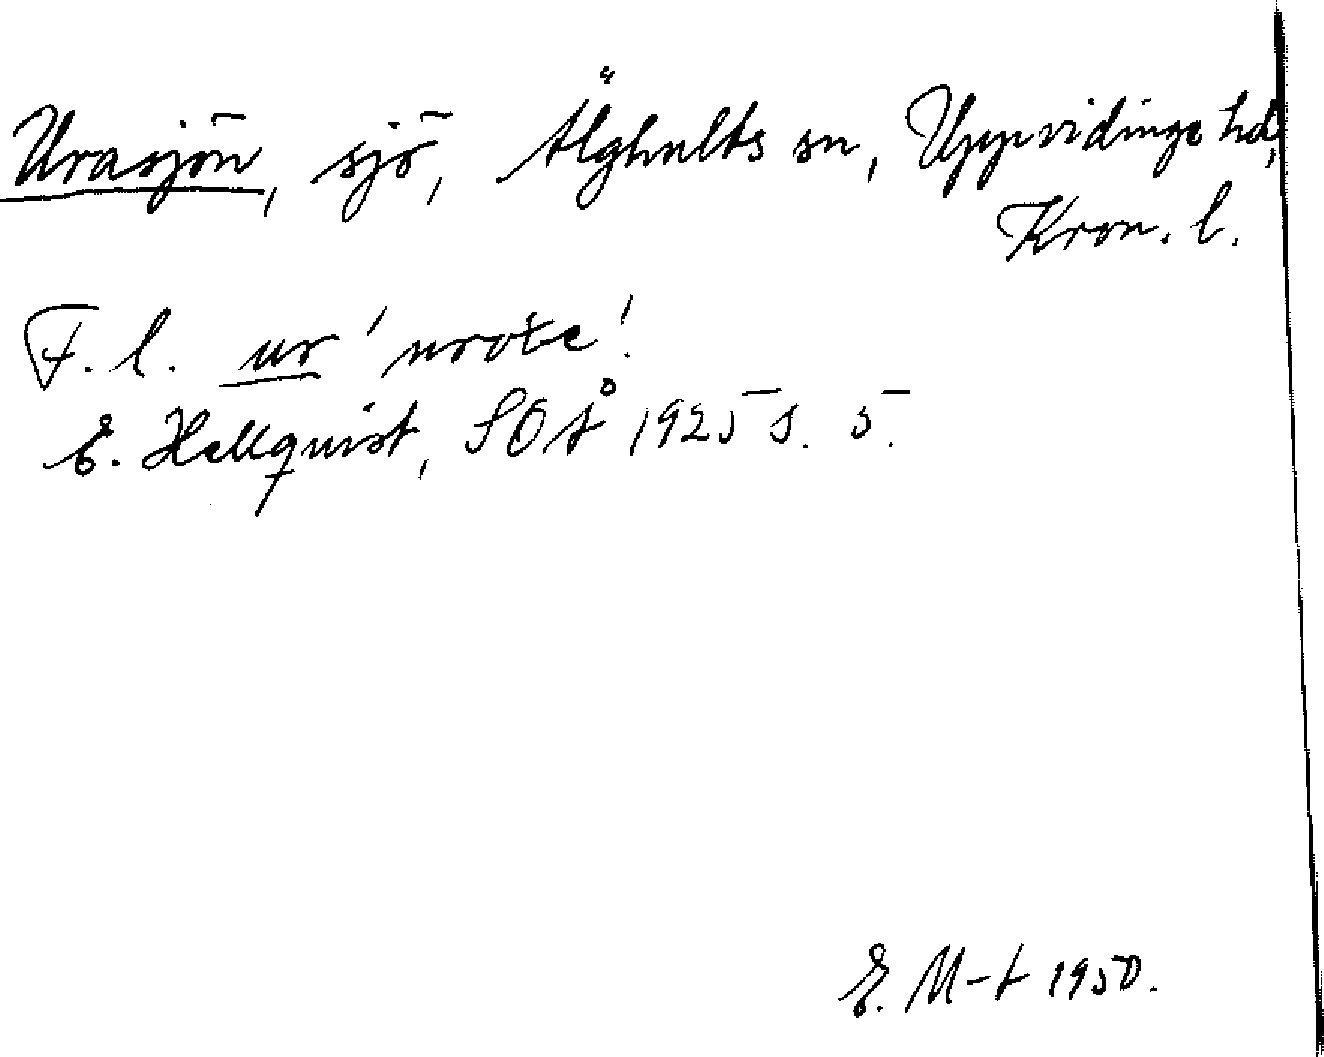 Urasjön, sjö, Älghults sn, Uppvidinge hd,
Kron. l.
F. l. ur 'urote'.
E. Hellquist, SOÅ 1925 s. 5.
E. M-t 1950.